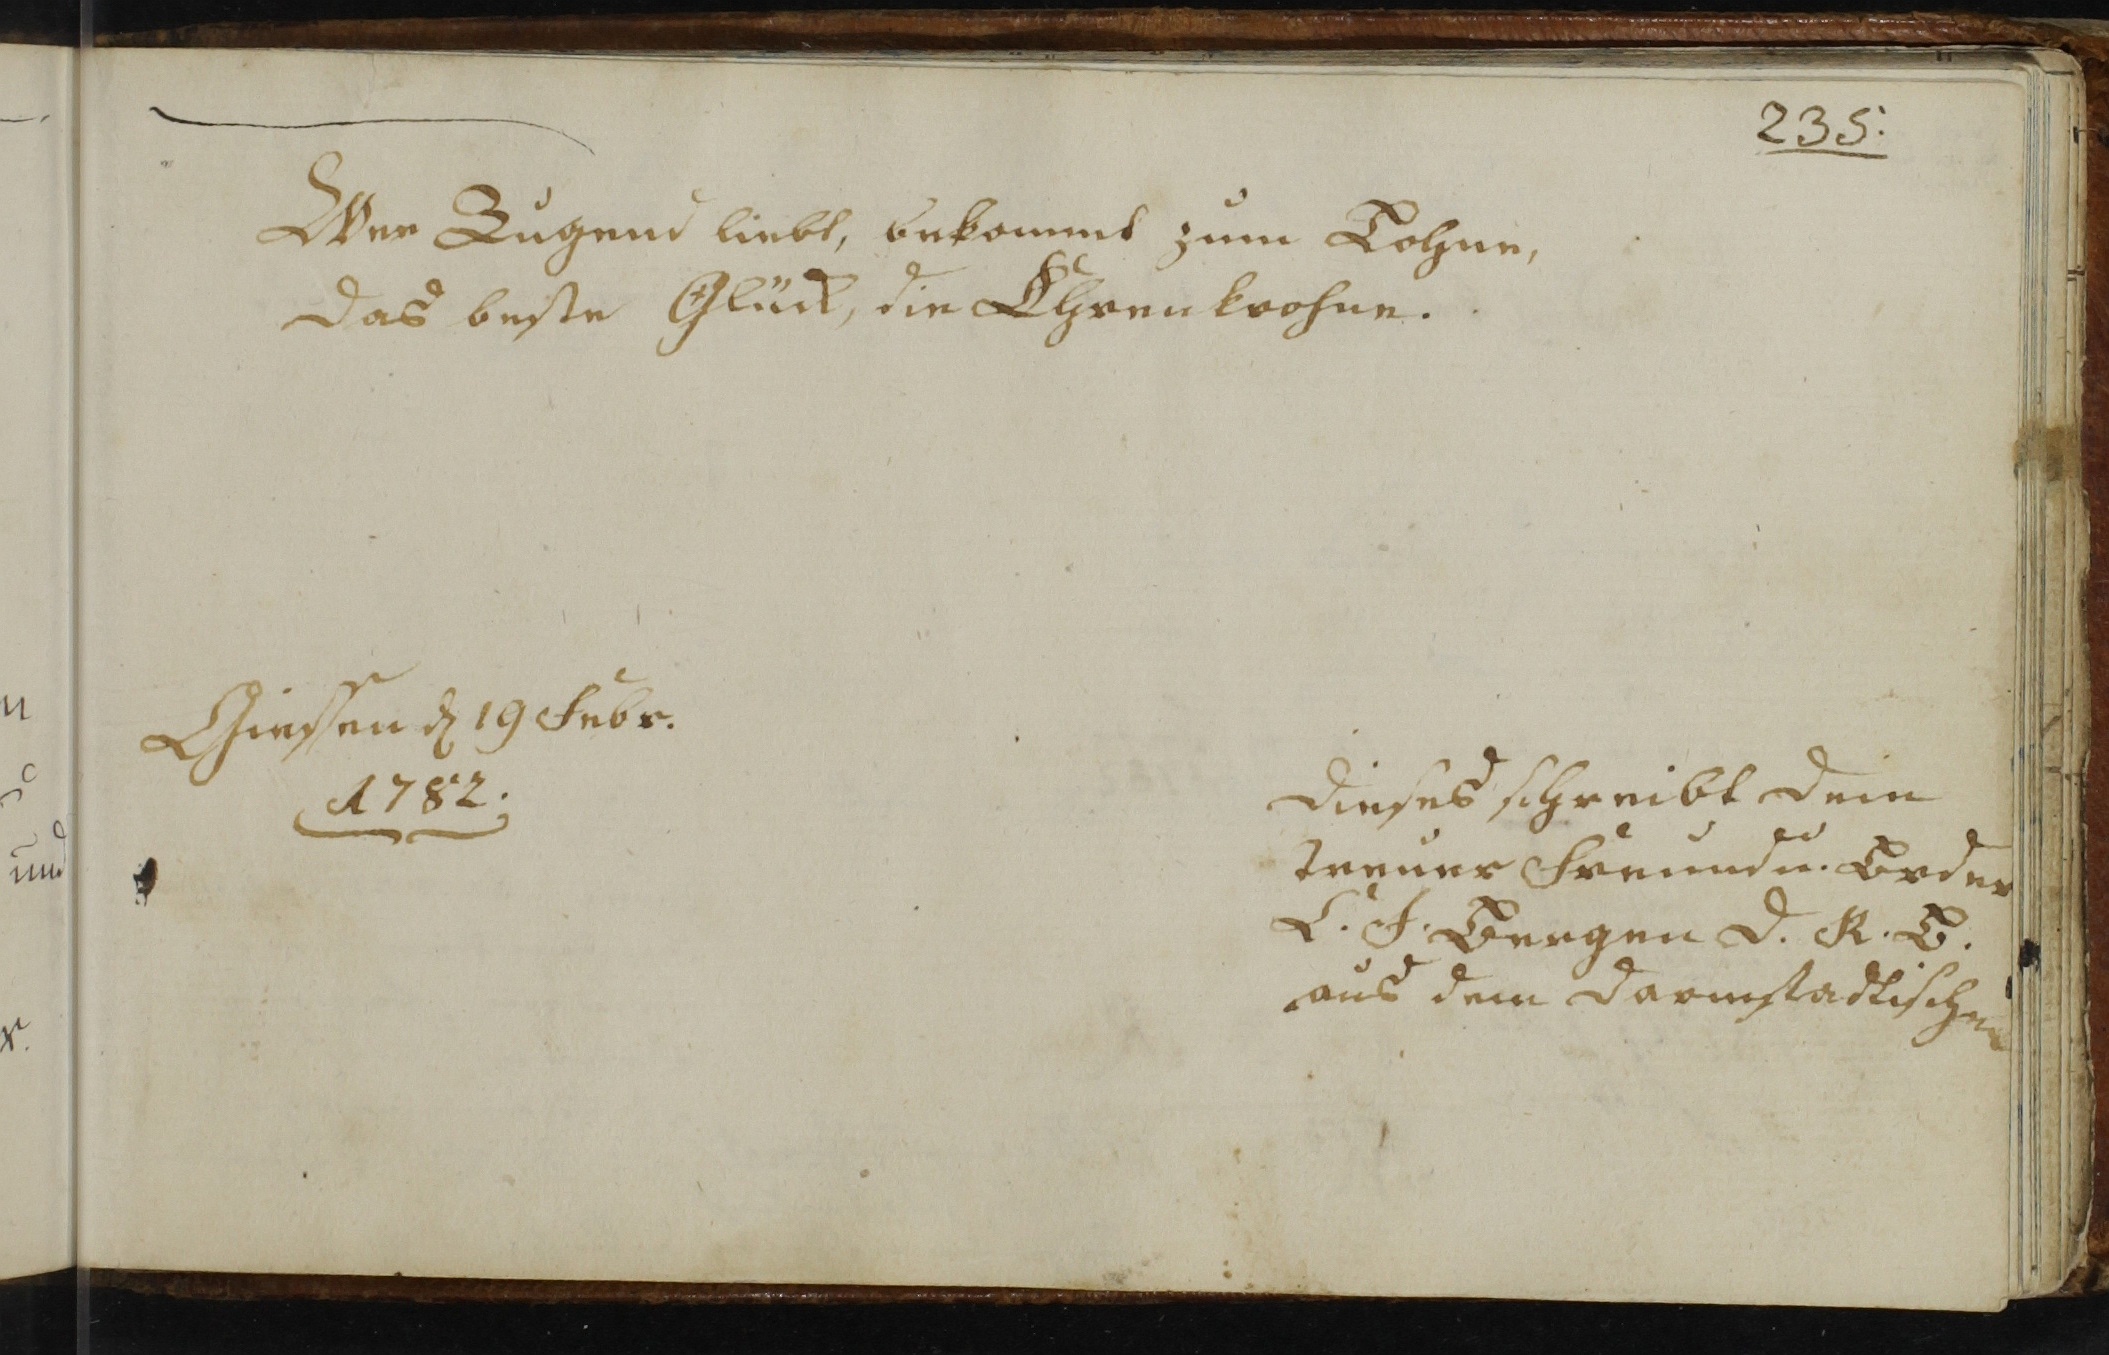 235.
Wer Tugend liebt, bekommt zum Lohne,
das beste Glück, die Ehrenkrohne.
Giessen d 19 Febr.
1782.
Dieses schreibt dein
treuer Freund u. Brder
C. F. Bergen d. R. B.
aus dem Darmstadtischen